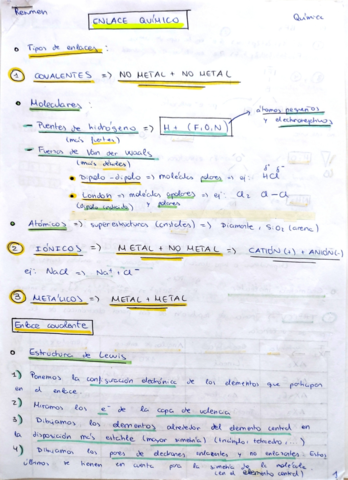 Resumen
Química
ENLACE QUÍMICO
Tipos de enlaces:
1 COVALENTES => NO METAL + NO METAL
Moleculares:
átomos pequeños
y electronegativos
- Puentes de hidrógeno => H + (F,O,N)
(más fuertes)
- Fuerzas de Van der Waals
(más débiles)
Dipolo-dipolo => moléculas polares => ej: HCl
δ+ δ-
London => moléculas apolares => ej: Cl2 Cl-Cl
(dipolo inducido) y polares
Atómicos => superestructuras (cristales) => Diamante, SiO2 (arena)
2 IÓNICOS => METAL + NO METAL => CATIÓN (+) + ANIÓN (-)
ej: NaCl => Na+ + Cl-
3 METÁLICOS => METAL + METAL
Enlace covalente
Estructura de Lewis
1) Ponemos la configuración electrónica de los elementos que participan
en el enlace.
2) Miramos los e- de la capa de valencia
3) Dibujamos los elementos alrededor del elemento central en
la disposición más estable (mayor simetría) (triángulo, tetraedro, ...)
4) Dibujamos los pares de electrones enlazantes y no enlazantes. Estos
últimos se tienen en cuenta para la simetría de la molécula
(en el elemento central)
1